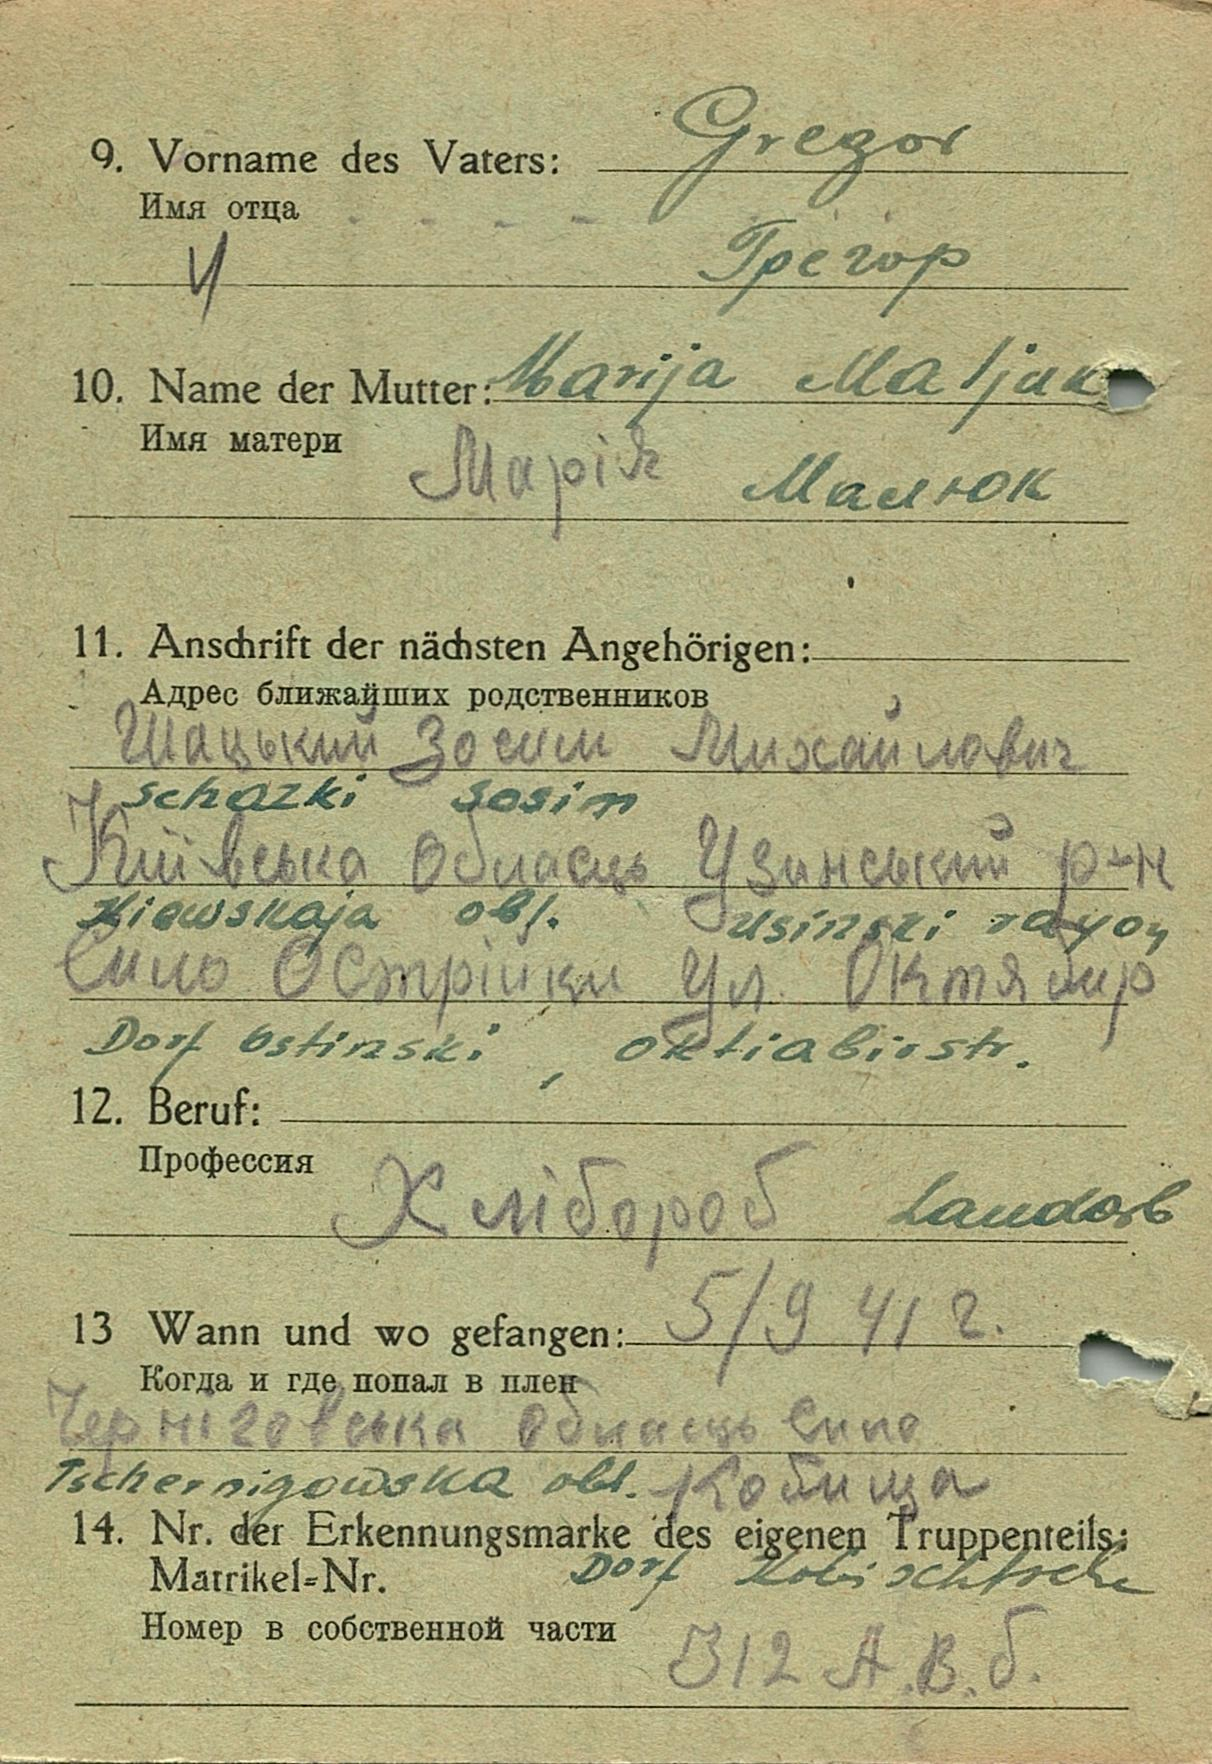 9. Vorname des Vaters: Gregor
Имя отца
Грегор
10. Name der Mutter: Marija Maljuk
Имя матери
Марія Малюк
11. Anschrift der nächsten Angehörigen:
Адрес ближайших родственников
Шацький Зосим Михайлович
Schazki Sosim
Київська Обласць Узинський р-н
Kiewskaja obl. Usinski rayon
Сило Острійки Ул. Октябир
Dorf Ostinski, oktiabirstr.
12. Beruf:
Профессия
Хлібороб Landarb
13 Wann und wo gefangen: 5/9 41 г.
Когда и где попал в плен
Черніговська Обласць Сило
Tschernigowska obl. Кобища
14. Nr. der Erkennungsmarke des eigenen Truppenteils:
Matrikel-Nr. Dorf
Номер в собственной части
312 А.В.б.